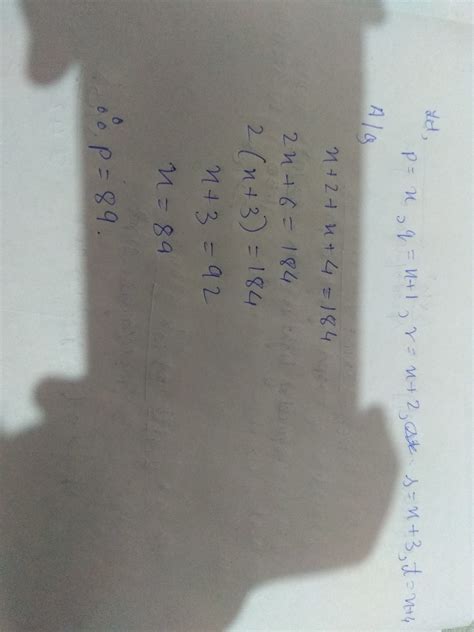 let,
p = x, q = x+1, r = x+2, s = x+3, t = x+4
A/q
x+2+x+4 = 184
2x+6 = 184
2(x+3) = 184
x+3 = 92
x = 89
∴ p = 89.